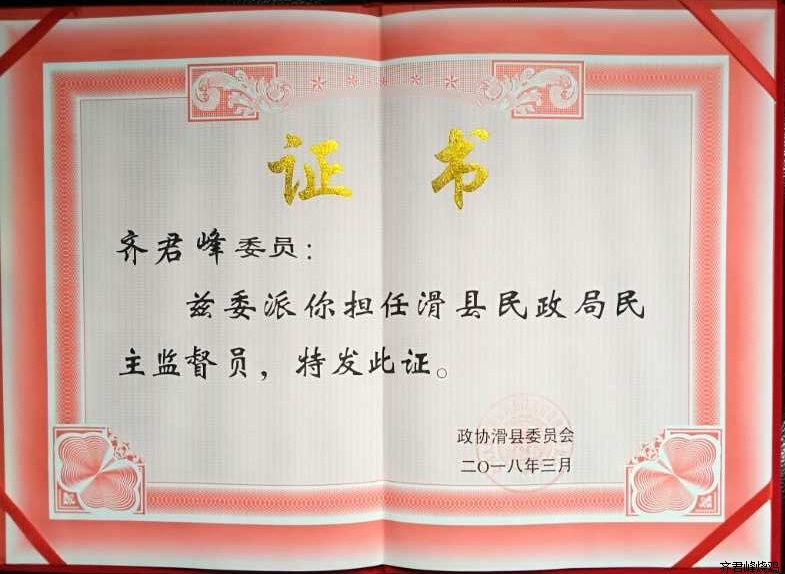 证书
齐君峰委员：
兹委派你担任滑县民政局民
主监督员，特发此证。
政协滑县委员会
二〇一八年三月
齐君峰烧鸡